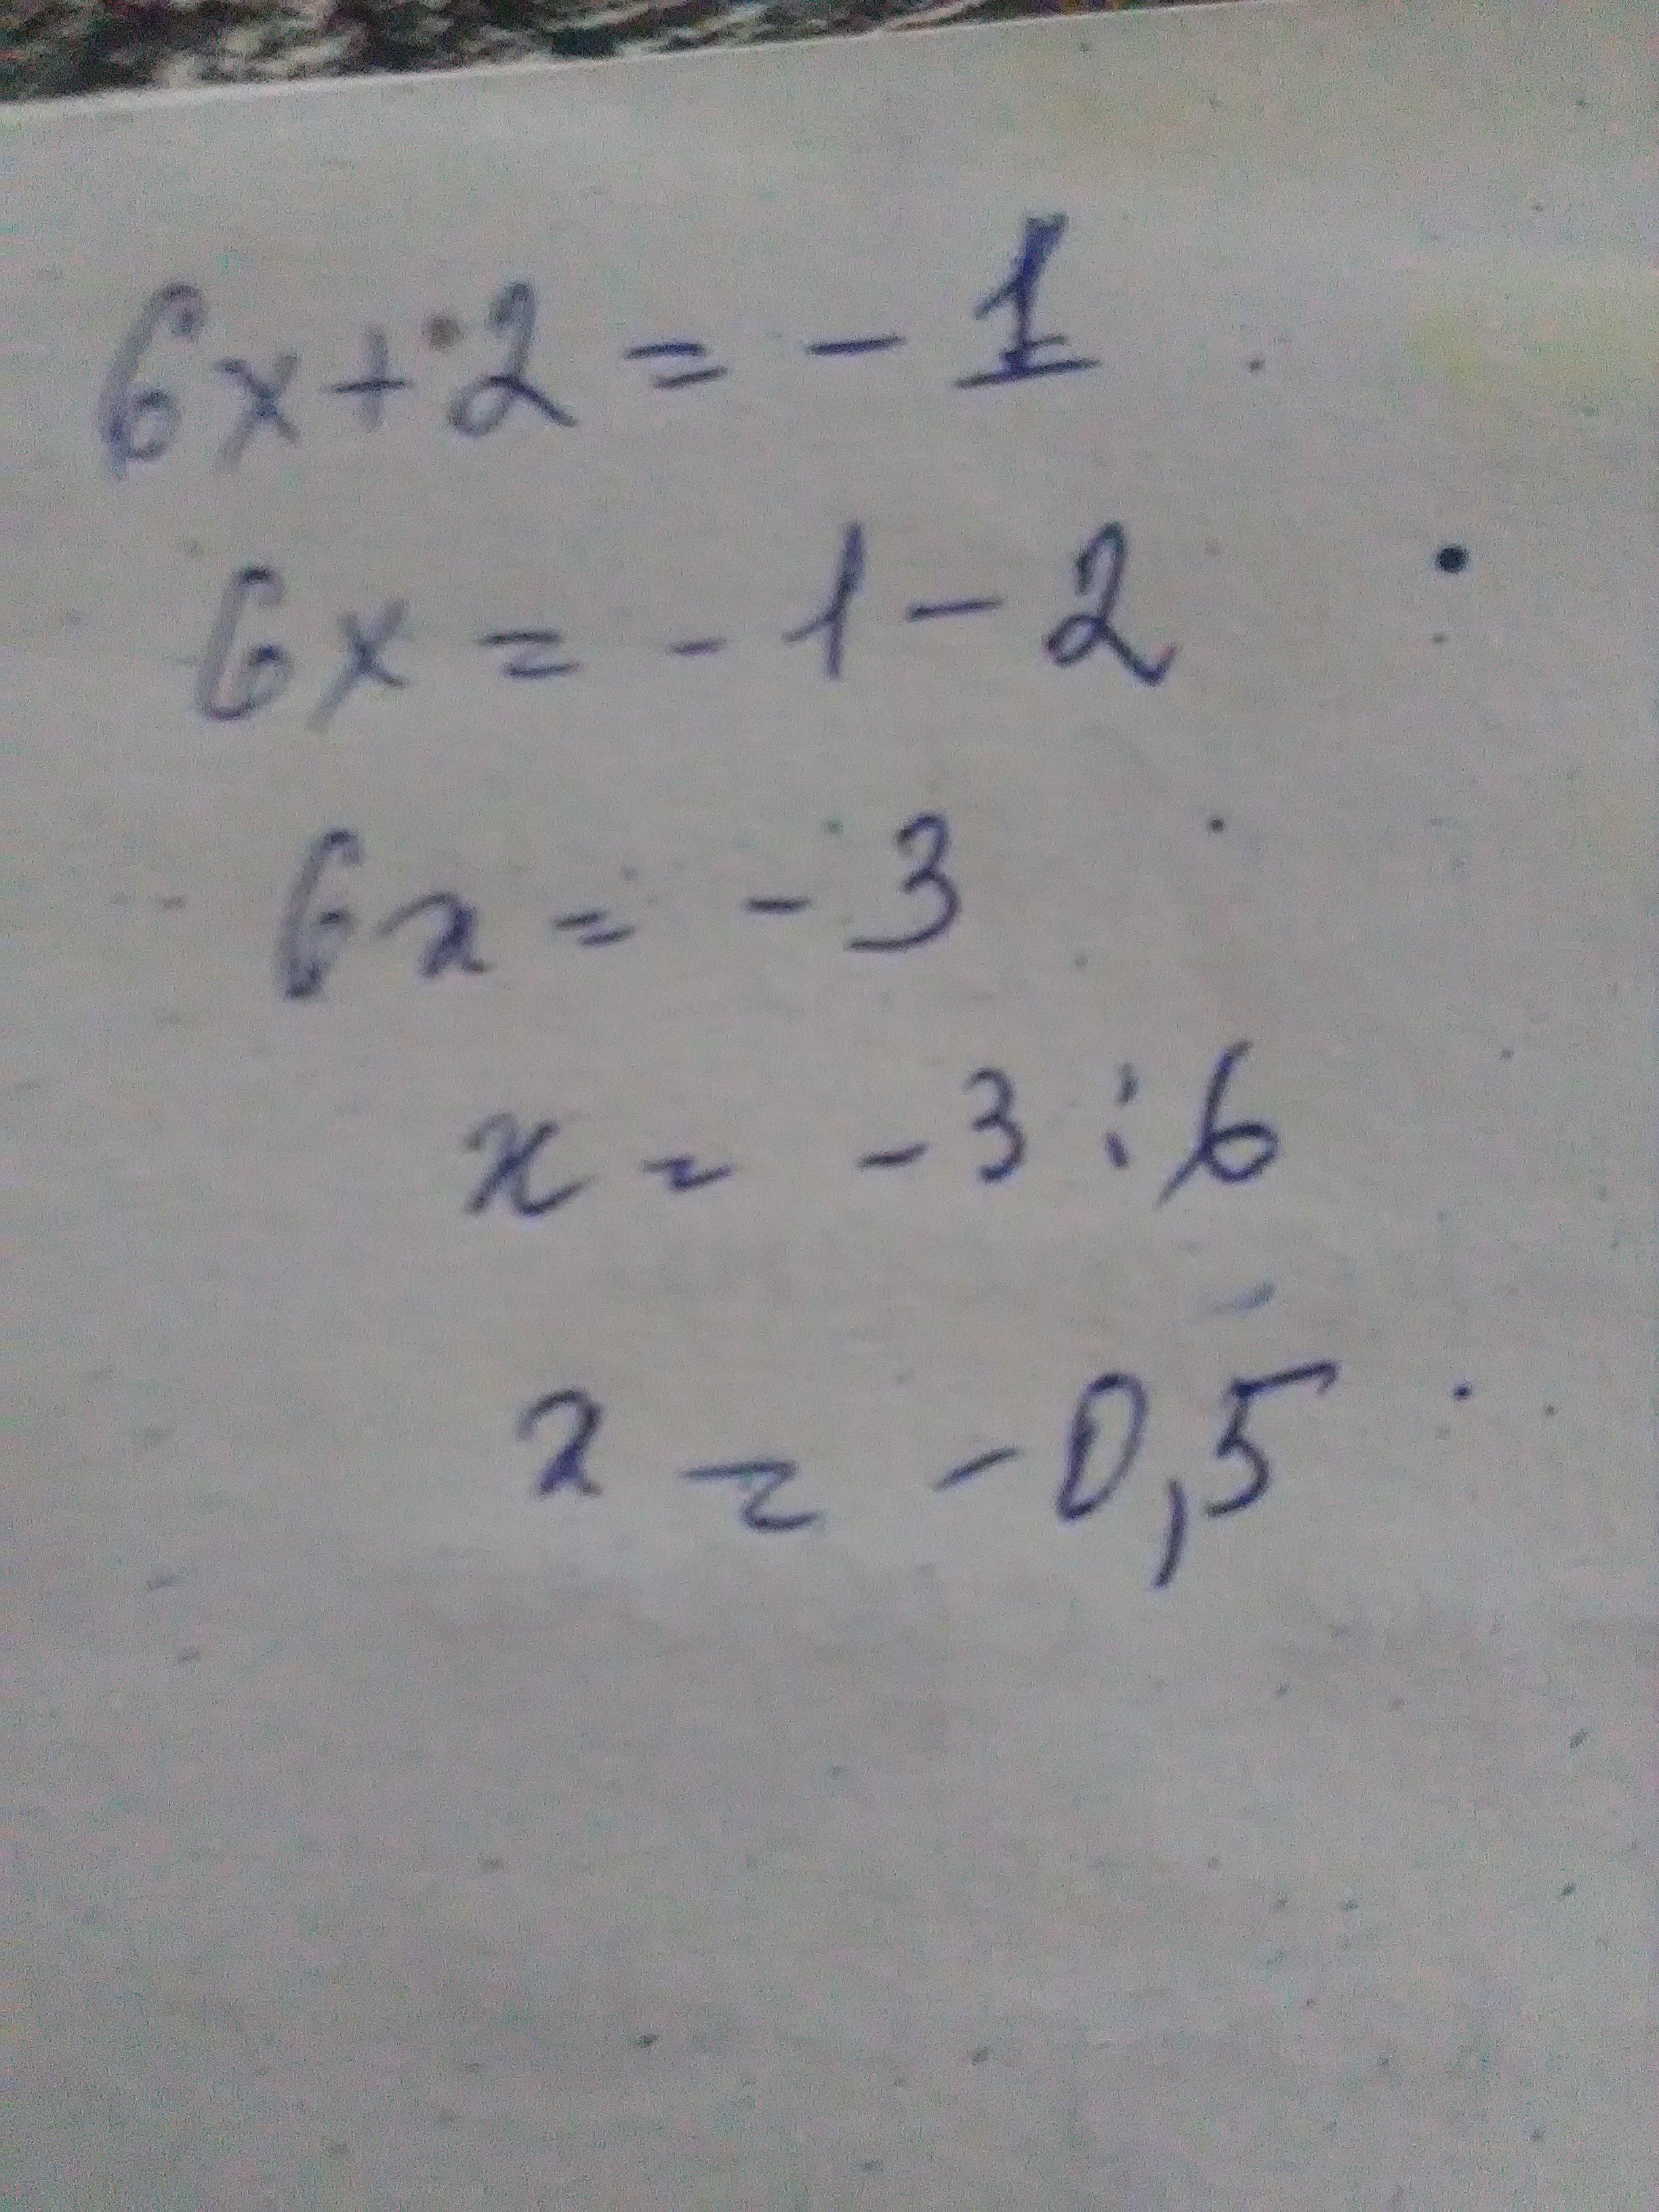 6x+2 = - 1
6x = - 1 - 2
6x = - 3
x = - 3 : 6
x = - 0,5